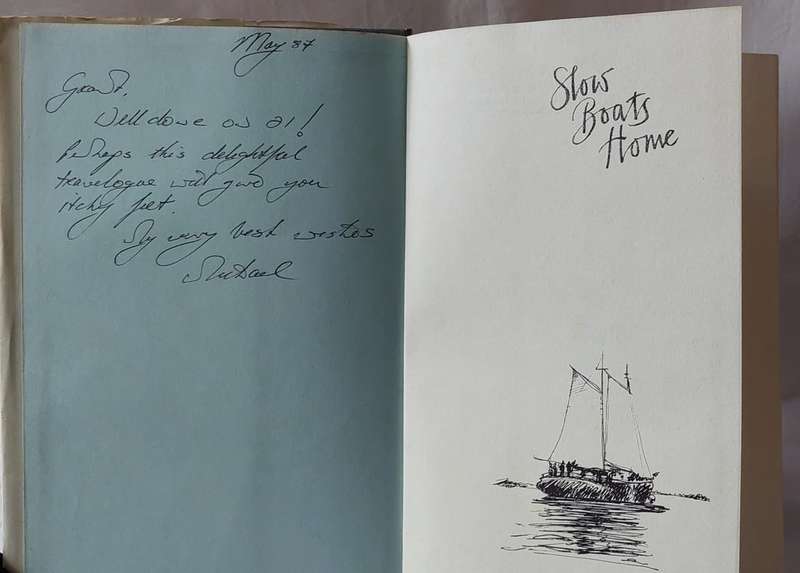 May 87
Grant.
Well done on 21!
Perhaps this delightful
travelogue will give you
itchy feet.
My very best wishes
Michael
Slow
Boats
Home